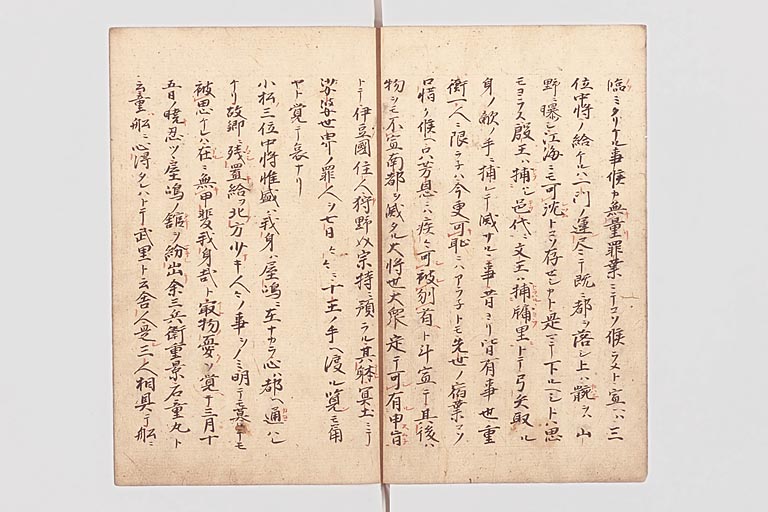 臨ミタリケル事候カ無量罪業ニテコソ候ラメト宣ハ三
位中将ノ給ケルハ一門ノ運尽ニテ既ニ都ヲ落シ上ハ骸ヲ山
野ニ曝シ江海ニモ可沈トコソ存セシカト是ニテ下ルヘシトハ思
モヨラス殷王ハ捕レ邑代ニ文王ハ捕牖里トテ弓矢取ル
身ノ敵ノ手ニ捕レテ滅サルヽ事昔ヨリ皆有事也重
衡一人ニ限ラネハ今更可恥ニハアラネトモ先世ノ宿業コソ
口惜ク候ヘ只ハ芳恩ニハ疾々可被刎首ト斗宣テ其後ハ
物ヲモ不宣南都ヲ滅タル大将也大衆定テ可有申旨
トテ伊豆國住人狩野介宗持ニ預ラル其躰冥土ニテ
娑婆世界ノ罪人ヲ七日々々ニ十王ノ手ヘ渡ル覧モ角
ヤト覚テ哀ナリ
小松三位中将惟盛ハ我身ハ屋嶋ニ在ナカラ心ハ都ヘ通ハレ
ケリ故郷ニ残置給フ北方少キ人々ノ事ヲノミ明テモ暮テモ
被思ケレハ在ニ無甲斐我身哉ト最物憂ク覚テ三月十
五日ノ暁忍ツヽ屋嶋ノ舘ヲ紛出余三兵衛重景石童丸ト
云童船ニ心得タレハトテ武里ト云舎人是三人相具テ船ニ